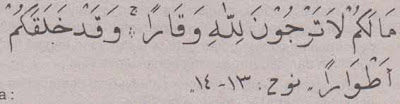 مَالَكُمْ لَا تَرْجُونَ لِلّٰهِ وَقَارًا ۚ وَقَدْ خَلَقَكُمْ
أَطْوَارًا . نوح : ١٣-١٤
a :